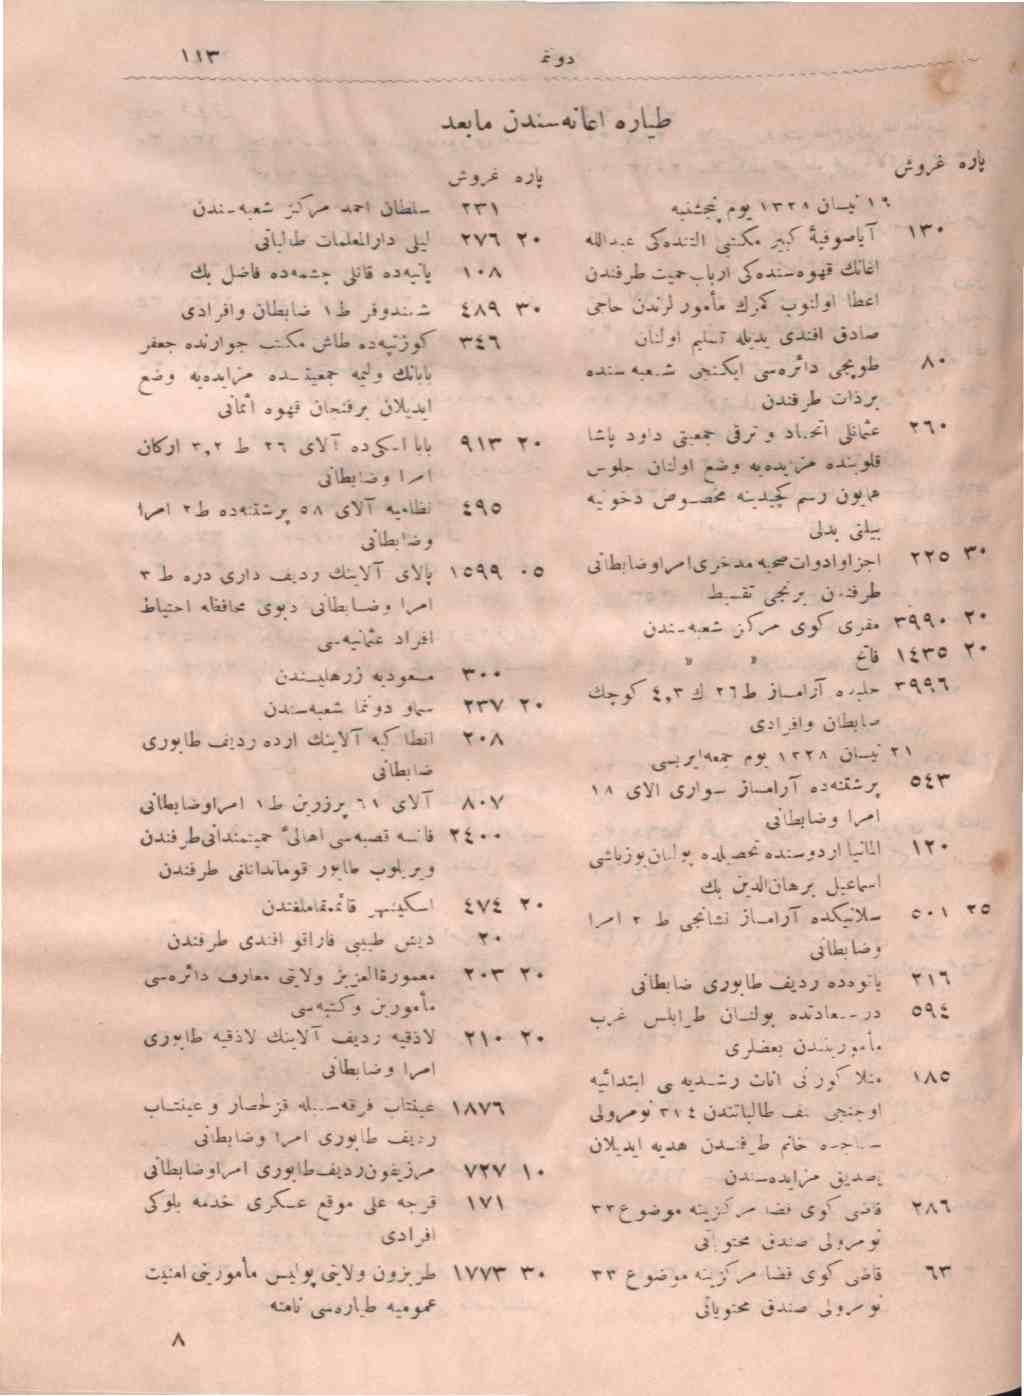 دونما ١١٣
طياره اعانه‌سندن مابعد
پاره غروش
١٩ نيسان ١٣٢٨ يوم پنجشنبه
١٣٠ آياصوفيۀ كبير مكتبى التنده‌كى عبدالله
اغانك قهوه‌سنده‌كى ارباب حميت طرفندن
اعطا اولنوب كمرك مأمورلرندن حاجى
صادق افندى يديله تسليم اولنان
٨٠ طوپجى دائره‌سى ايكنجى شعبه‌سنده
برذات طرفندن
٢٦٠ عثمانلى اتحاد و ترقى جمعيتى داود پاشا
قلوبنده مزايده‌يه وضع اولنان جلوس
همايون رسم كچيدينه مخصوص دخوليه
بيلتى بدلى
٣٠ ٢٢٥ اجزا وادوات صحيه مدخرى امرا وضابطانى
طرفندن برنجى تقسيط
٢٠ ٣٩٩٠ مقرى كوى مركز شعبه‌سندن
٢٠ ١٤٣٥ فاتح » »
٣٩٩٦ آرامساز ط ٢٦ ك ٤,٣ كوچك
ضابطان وافرادى
٢١ نيسان ١٣٢٨ يوم جمعه‌ايرتسى
٥٤٣ پرشتنه‌ده آرامساز سوارى الاى ١٨
امرا وضابطانى
١٢٠ المانيا اردوسنده تحصيلده بولنان يوزباشى
اسماعيل برهان‌الدين بك
٢٥ ٥٠١ سلانيكده آرامساز نشانجى ط ٢ امرا
وضابطانى
٣١٦ يانوه‌ده رديف طابورى ضابطانى
٥٩٤ درسعادتده بولنان طرابلس غرب
مأموريندن بعضلرى
١٨٥ منلا كورانى اناث رشديه‌سى ابتدائيه
اوچنجى صنف طالباتندن ٣١٤ نومرولى
ساجده خانم طرفندن هديه ايديلان
يصديق مزايده‌سندن
٢٨٦ قاضى كوى قضا مركزينه موضوع ٣٣
نومرولى صندق محتوياتى
٦٣ قاضى كوى قضا مركزينه موضوع ٣٣
نومرولى صندق محتوياتى
پاره غروش
٢٣١ سلطان احمد مركز شعبه‌سندن
٢٠ ٢٧٦ ليلى دارالمعلمات طالباتى
١٠٨ يانيه‌ده قانلى چشمه‌ده فاضل بك
٣٠ ٤٨٩ شمندوفر ط ١ ضابطان وافرادى
٣٤٦ كوزتپه‌ده طاش مكتب جوارنده جعفر
بابانك وليمه جمعيتنده مزايده‌يه وضع
ايديلان برفنجان قهوه اثمانى
٢٠ ٩١٣ بابا اسكى‌ده آلاى ٢٦ ط ٣,٢ اركان
امرا وضابطانى
٤٩٥ نظاميه آلاى ٥٨ پرشتنه‌ده ط ٢ امرا
وضابطانى
٠٥ ١٥٩٩ پالاى آلاينك رديف دارى دره ط ٣
امرا وضابطانى دپوى محافظه احتياط
افراد عثمانيه‌سى
٣٠٠ مسعوديه زرهليسندن
٢٠ ٢٣٧ سماو دونما شعبه‌سندن
٢٠٨ انطاكيه آلاينك ارده رديف طابورى
ضابطانى
٨٠٧ آلاى ٦١ پرزرين ط ١ امرا وضابطانى
٢٤٠٠ فاتسه قصبه‌سى اهالئ حميتمندانى طرفندن
ويريلوب طابور قوماندانلغى طرفندن
٢٠ ٤٧٤ اسكيشهر قائممقاملغندن
٢٠ ديش طبيبى فاراقو افندى طرفندن
٢٠ ٢٠٣ معمورةالعزيز ولايتى معارف دائره‌سى
مأمورين وكتبه‌سى
٢٠ ٢١٠ لاذقيه رديف آلاينك لاذقيه طابورى
امرا وضابطانى
١٨٧٦ عينتاب فرقه‌سيله قزلحصار و عينتاب
رديف طابورى امرا وضابطانى
١٠ ٧٢٧ مرزيفون رديف طابورى امرا وضابطانى
١٧١ قرجه على موقع عسكرى خدمه بلوكى
افرادى
٣٠ ١٧٧٣ طربزون ولايتى پوليس مأمورينى امنيت
عموميه طياره‌سى نامنه
٨